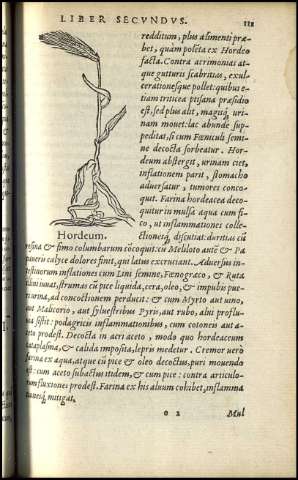 LIBER SECVNDVS.
redditum, plus alimenti præ=
bet, quàm posita ex Hordeo
facta. Contra acrimonias at
que gutturis scabritias, exul=
cerationesque pollet: quibus e=
tiam triticea ptisana præsidio
est, sed plus alit, magisq; uri=
nam mouet: lac abunde sup=
peditat, si cum Fœniculi semi=
ne decocta sorbeatur. Hor=
deum abstergit, urinam ciet,
inflationem parit, stomacho
aduersatur, tumores conco=
quit. Farina hordeacea deco=
quitur in mulsa aqua cum fi=
co, ut inflammationes colle=
Hordeum.
ctionesq; discutiat: duritias cū
resina & fimo columbarum cōcoquit. cū Meliloto autē & Pa
paueris calyce dolores finit, qui latus excruciant. Aduersus in=
testinorum inflationes cum Lini semine, Fenograco, & Ruta
illini iuuat, strumas cū pice liquida, cera, oleo, & impubis pue=
ri urina, ad concoctionem perducit: & cum Myrto aut uino,
aut Malicorio, aut syluestribus Pyris, aut rubo, alui proflu=
uia sistit: podagricis inflammationibus, cum cotoneis aut a=
ceto prodest. Decocta in acri aceto, modo quo hordeaceum
cataplasma, & calida imposita, lepris medetur. Cremor uerò
farina ex aqua, atque cū pice & oleo decoctus, puri mouendo
est: cum aceto subactus itidem, & cum pice: contra articulo=
rum fluxiones prodest. Farina ex his aluum cohibet, inflamma
tionesq; mitigat.
o 2
Mul